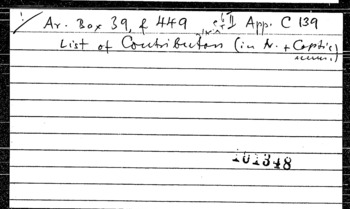 Ar. Box 39, f 449 II App. C 139
List of Contributors (in Ar. + Coptic)
101348